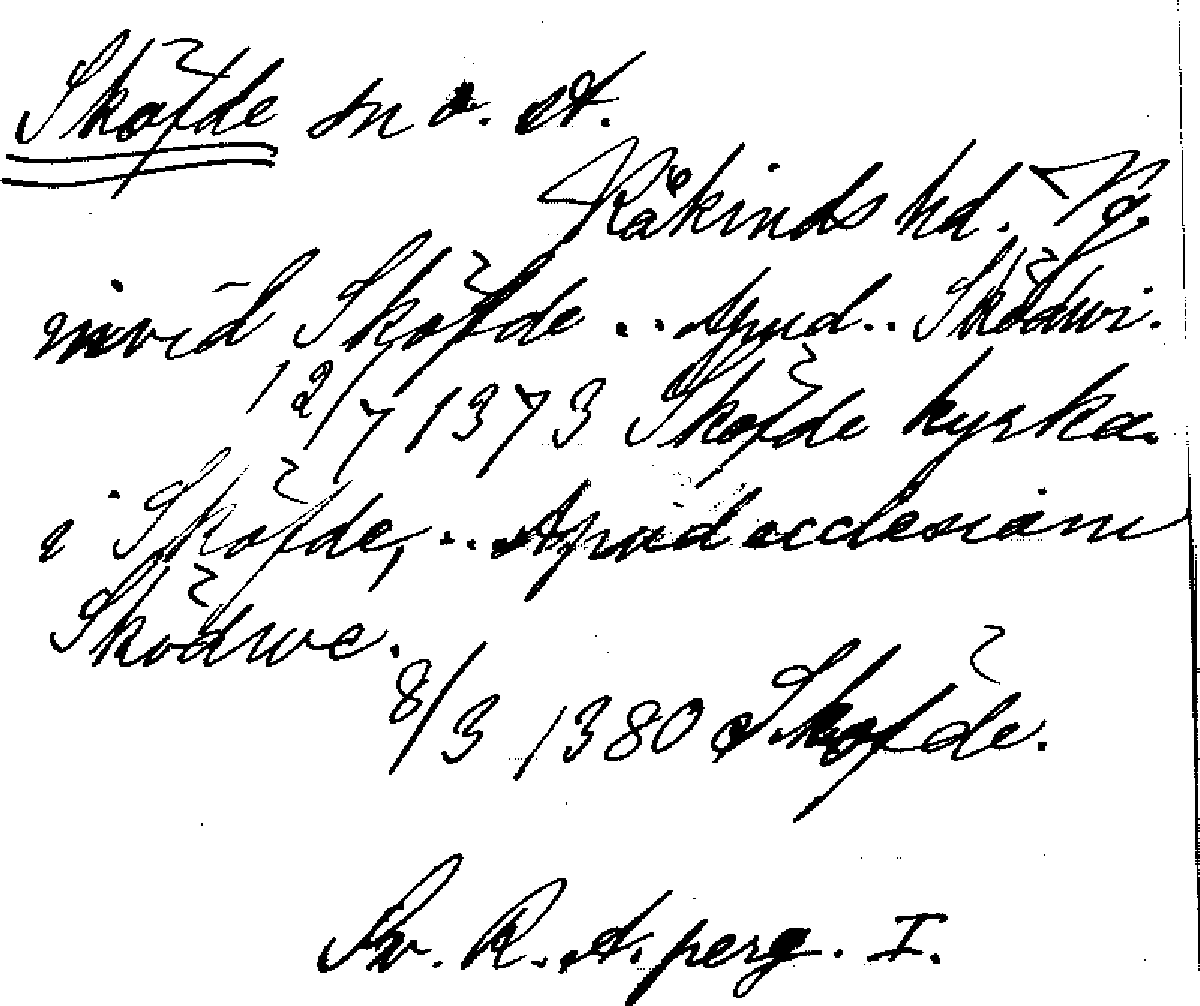 Sköfde sn o. st.
Kåkinds hd. Vg.
invid Sköfde .. Apud .. Sködwi.
12/7 1373 Sköfde kyrka
i Sköfde, .. Apud ecclesiam
Sködwe.
8/3 1380 Sköfde.
Sv. R. A. perg. I.